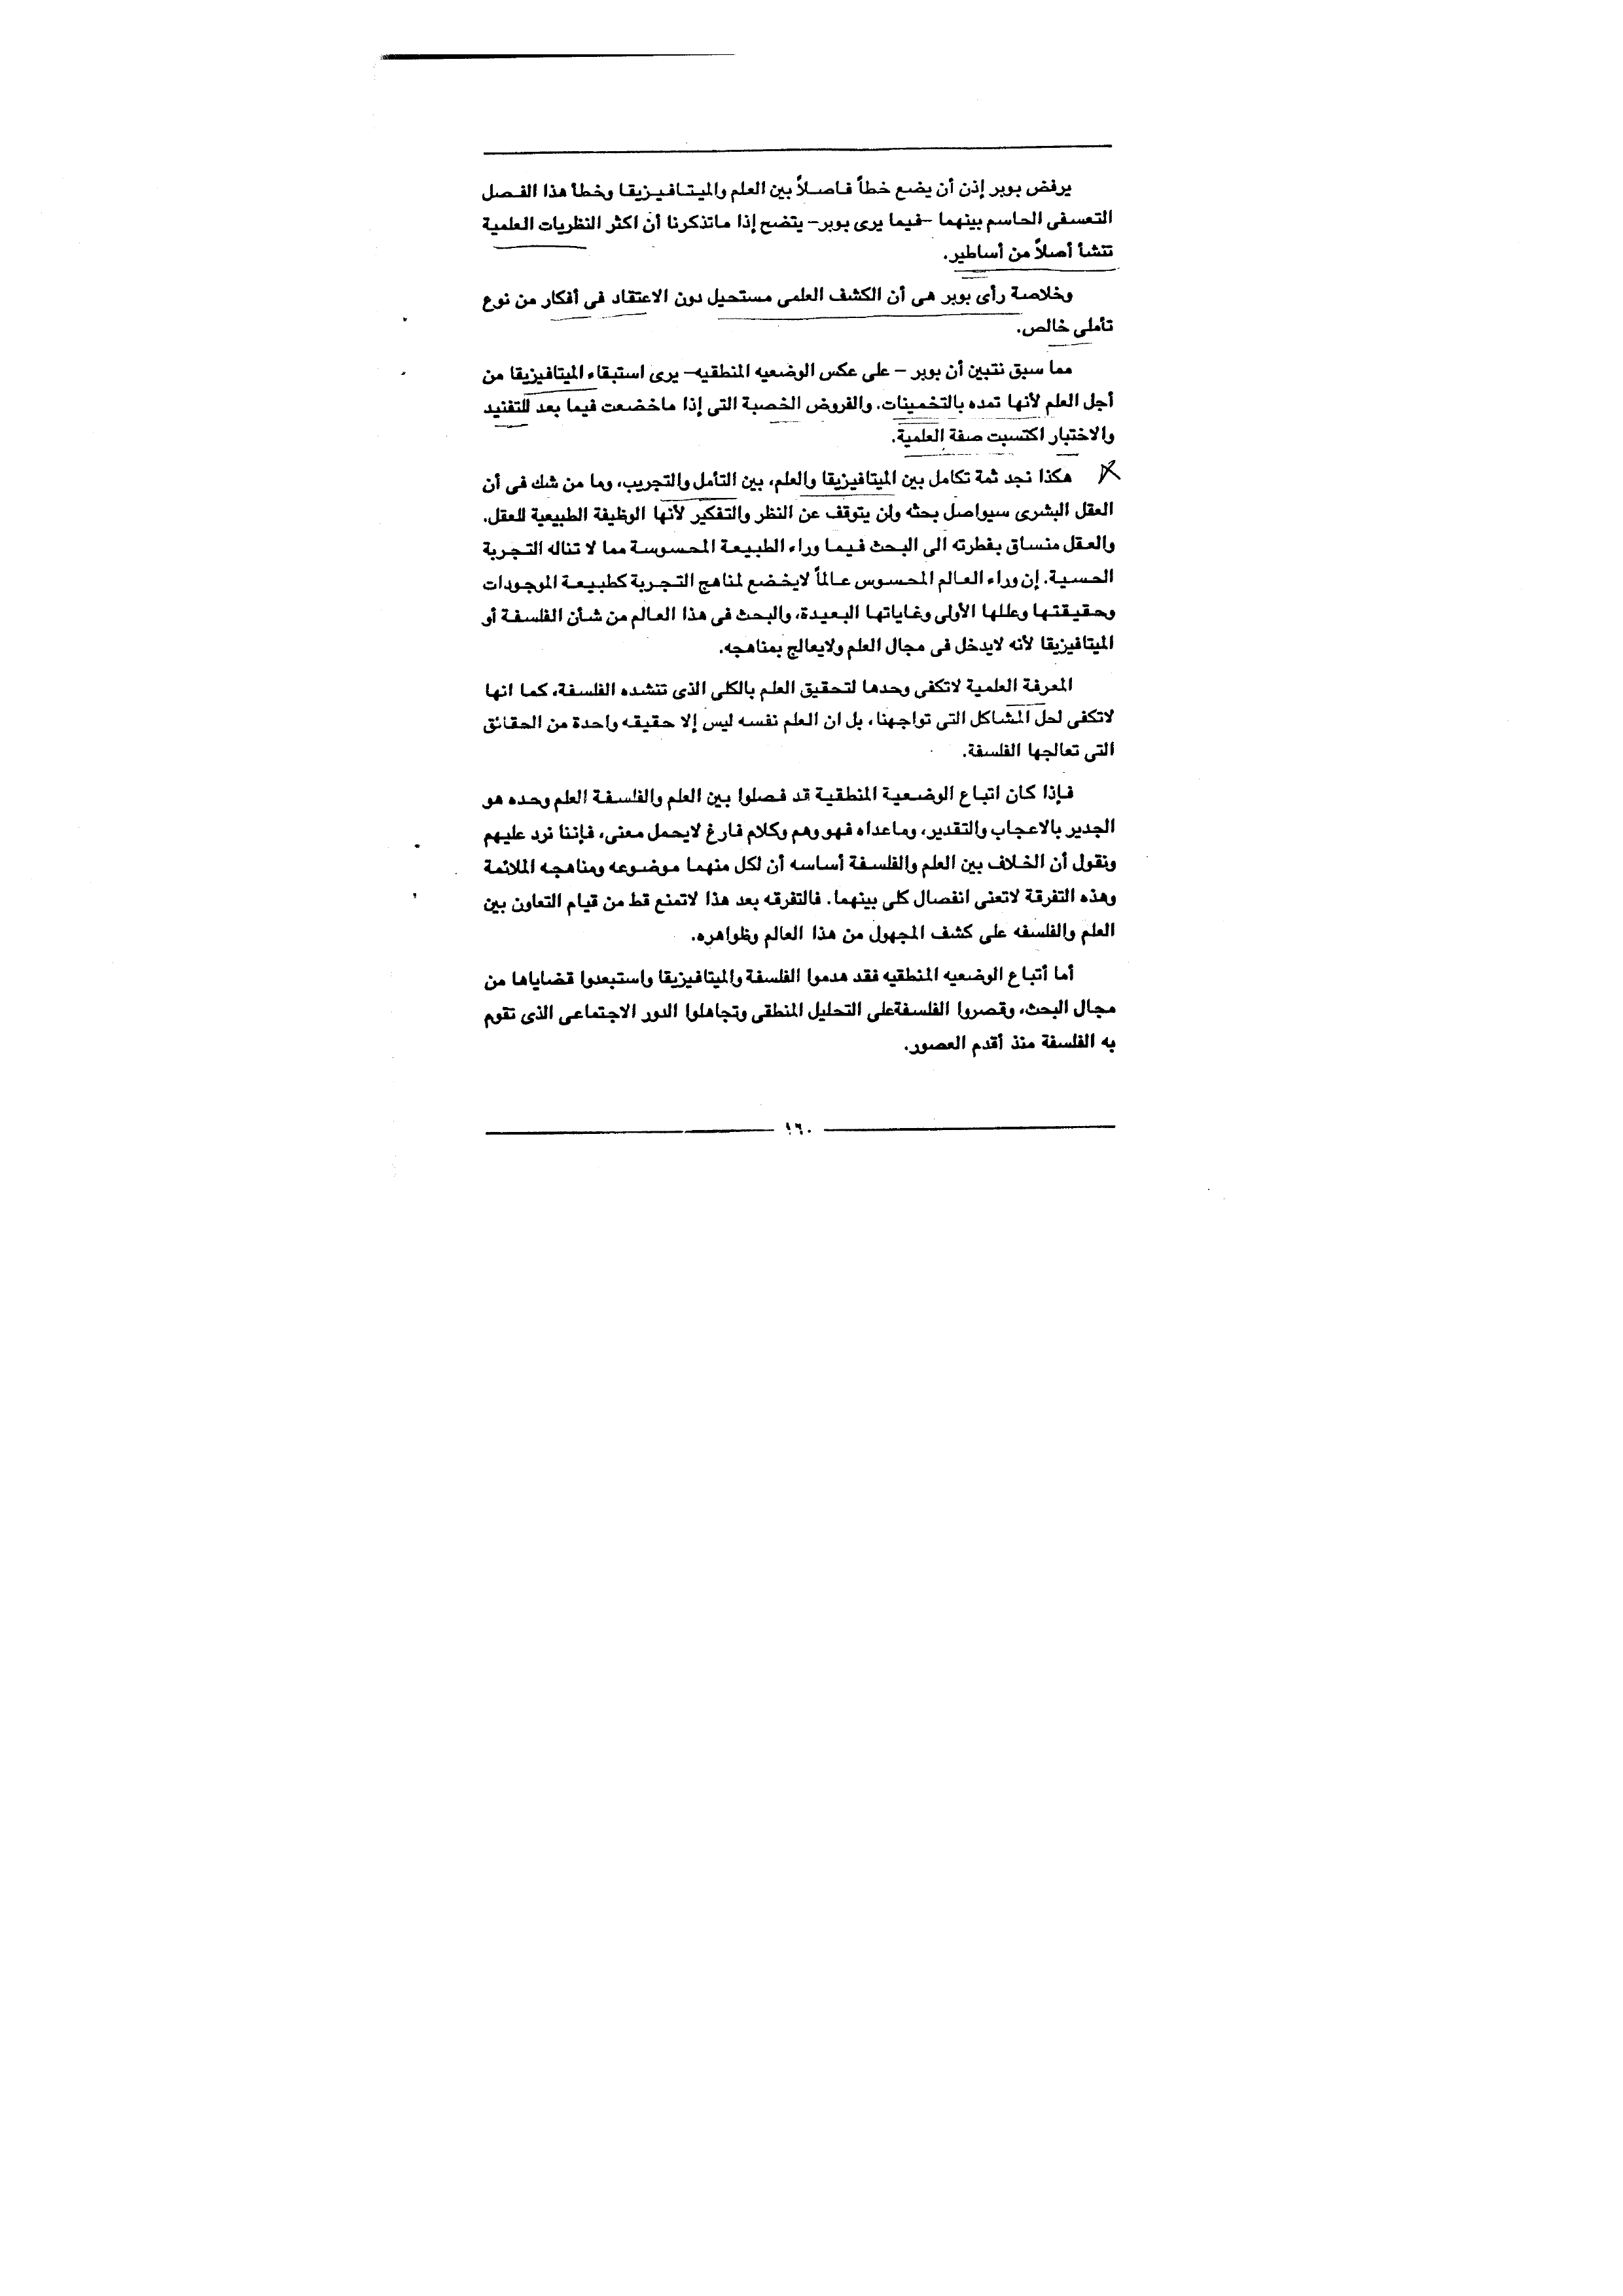 يرفض بوبر إذن أن يضع خطاً فاصلاً بين العلم والميتافيزيقا وخطأ هذا الفصل
التعسفى الحاسم بينهما -فيما يرى بوبر- يتضح إذا ماتذكرنا أن اكثر النظريات العلمية
تنشأ أصلاً من أساطير.
وخلاصة رأى بوبر هى أن الكشف العلمى مستحيل دون الاعتقاد فى أفكار من نوع
تأملى خالص.
مما سبق نتبين أن بوبر - على عكس الوضعيه المنطقيه- يرى استبقاء الميتافيزيقا من
أجل العلم لأنها تمده بالتخمينات. والفروض الخصبة التى إذا ماخضعت فيما بعد للتفنيد
والاختبار اكتسبت صفة العلمية.
هكذا نجد ثمة تكامل بين الميتافيزيقا والعلم، بين التأمل والتجريب، وما من شك فى أن
العقل البشرى سيواصل بحثه ولن يتوقف عن النظر والتفكير لأنها الوظيفة الطبيعية للعقل.
والعقل منساق بفطرته الى البحث فيما وراء الطبيعة المحسوسة مما لا تناله التجربة
الحسية. إن وراء العالم المحسوس عالماً لايخضع لمناهج التجربة كطبيعة الموجودات
وحقيقتها وعللها الأولى وغاياتها البعيدة، والبحث فى هذا العالم من شأن الفلسفة أو
الميتافيزيقا لأنه لايدخل فى مجال العلم ولايعالج بمناهجه.
المعرفة العلمية لاتكفى وحدها لتحقيق العلم بالكلى الذى تنشده الفلسفة، كما انها
لاتكفى لحل المشاكل التى تواجهنا، بل ان العلم نفسه ليس إلا حقيقه واحدة من الحقائق
التى تعالجها الفلسفة.
فإذا كان اتباع الوضعية المنطقية قد فصلوا بين العلم والفلسفة العلم وحده هو
الجدير بالاعجاب والتقدير، وماعداه فهو وهم وكلام فارغ لايحمل معنى، فإننا نرد عليهم
ونقول أن الخلاف بين العلم والفلسفة أساسه أن لكل منهما موضوعه ومناهجه الملائمة
وهذه التفرقة لاتعنى انفصال كلى بينهما. فالتفرقه بعد هذا لاتمنع قط من قيام التعاون بين
العلم والفلسفه على كشف المجهول من هذا العالم وظواهره.
أما أتباع الوضعيه المنطقيه فقد هدموا الفلسفة والميتافيزيقا واستبعدوا قضاياها من
مجال البحث، وقصروا الفلسفةعلى التحليل المنطقى وتجاهلوا الدور الاجتماعى الذى تقوم
به الفلسفة منذ أقدم العصور.
١٦٠